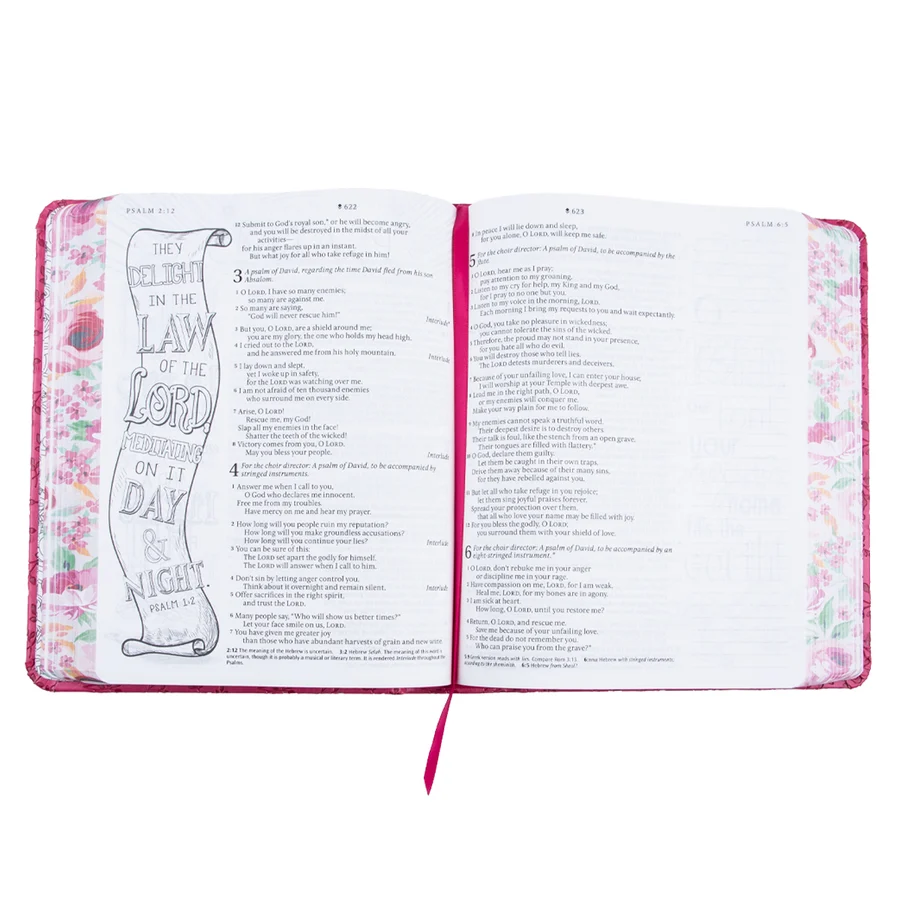 PSALM 2:12
622
THEY
DELIGHT
IN THE
LAW
OF THE
LORD,
MEDITATING
ON IT
DAY
&
NIGHT.
PSALM 1:2
12 Submit to God's royal son,* or he will become angry,
and you will be destroyed in the midst of all your
activities—
for his anger flares up in an instant.
But what joy for all who take refuge in him!
3 A psalm of David, regarding the time David fled from his son
Absalom.
1 O LORD, I have so many enemies;
so many are against me.
2 So many are saying,
"God will never rescue him!"
Interlude*
3 But you, O LORD, are a shield around me;
you are my glory, the one who holds my head high.
4 I cried out to the LORD,
and he answered me from his holy mountain.
Interlude
5 I lay down and slept,
yet I woke up in safety,
for the LORD was watching over me.
6 I am not afraid of ten thousand enemies
who surround me on every side.
7 Arise, O LORD!
Rescue me, my God!
Slap all my enemies in the face!
Shatter the teeth of the wicked!
8 Victory comes from you, O LORD.
May you bless your people.
Interlude
4 For the choir director: A psalm of David, to be accompanied by
stringed instruments.
1 Answer me when I call to you,
O God who declares me innocent.
Free me from my troubles.
Have mercy on me and hear my prayer.
2 How long will you people ruin my reputation?
How long will you make groundless accusations?
How long will you continue your lies?
Interlude
3 You can be sure of this:
The LORD set apart the godly for himself.
The LORD will answer when I call to him.
4 Don't sin by letting anger control you.
Think about it overnight and remain silent.
Interlude
5 Offer sacrifices in the right spirit,
and trust the LORD.
6 Many people say, "Who will show us better times?"
Let your face smile on us, LORD.
7 You have given me greater joy
than those who have abundant harvests of grain and new wine.
2:12 The meaning of the Hebrew is uncertain. 3:2 Hebrew Selah. The meaning of this word is
uncertain, though it is probably a musical or literary term. It is rendered Interlude throughout the
Psalms.
623
PSALM 6:5
8 In peace I will lie down and sleep,
for you alone, O LORD, will keep me safe.
5 For the choir director: A psalm of David, to be accompanied by the
flute.
1 O LORD, hear me as I pray;
pay attention to my groaning.
2 Listen to my cry for help, my King and my God,
for I pray to no one but you.
3 Listen to my voice in the morning, LORD.
Each morning I bring my requests to you and wait expectantly.
4 O God, you take no pleasure in wickedness;
you cannot tolerate the sins of the wicked.
5 Therefore, the proud may not stand in your presence,
for you hate all who do evil.
6 You will destroy those who tell lies.
The LORD detests murderers and deceivers.
7 Because of your unfailing love, I can enter your house;
I will worship at your Temple with deepest awe.
8 Lead me in the right path, O LORD,
or my enemies will conquer me.
Make your way plain for me to follow.
9 My enemies cannot speak a truthful word.
Their deepest desire is to destroy others.
Their talk is foul, like the stench from an open grave.
Their tongues are filled with flattery.*
10 O God, declare them guilty.
Let them be caught in their own traps.
Drive them away because of their many sins,
for they have rebelled against you.
11 But let all who take refuge in you rejoice;
let them sing joyful praises forever.
Spread your protection over them,
that all who love your name may be filled with joy.
12 For you bless the godly, O LORD;
you surround them with your shield of love.
6 For the choir director: A psalm of David, to be accompanied by an
eight-stringed instrument.*
1 O LORD, don't rebuke me in your anger
or discipline me in your rage.
2 Have compassion on me, LORD, for I am weak.
Heal me, LORD, for my bones are in agony.
3 I am sick at heart.
How long, O LORD, until you restore me?
4 Return, O LORD, and rescue me.
Save me because of your unfailing love.
5 For the dead do not remember you.
Who can praise you from the grave?*